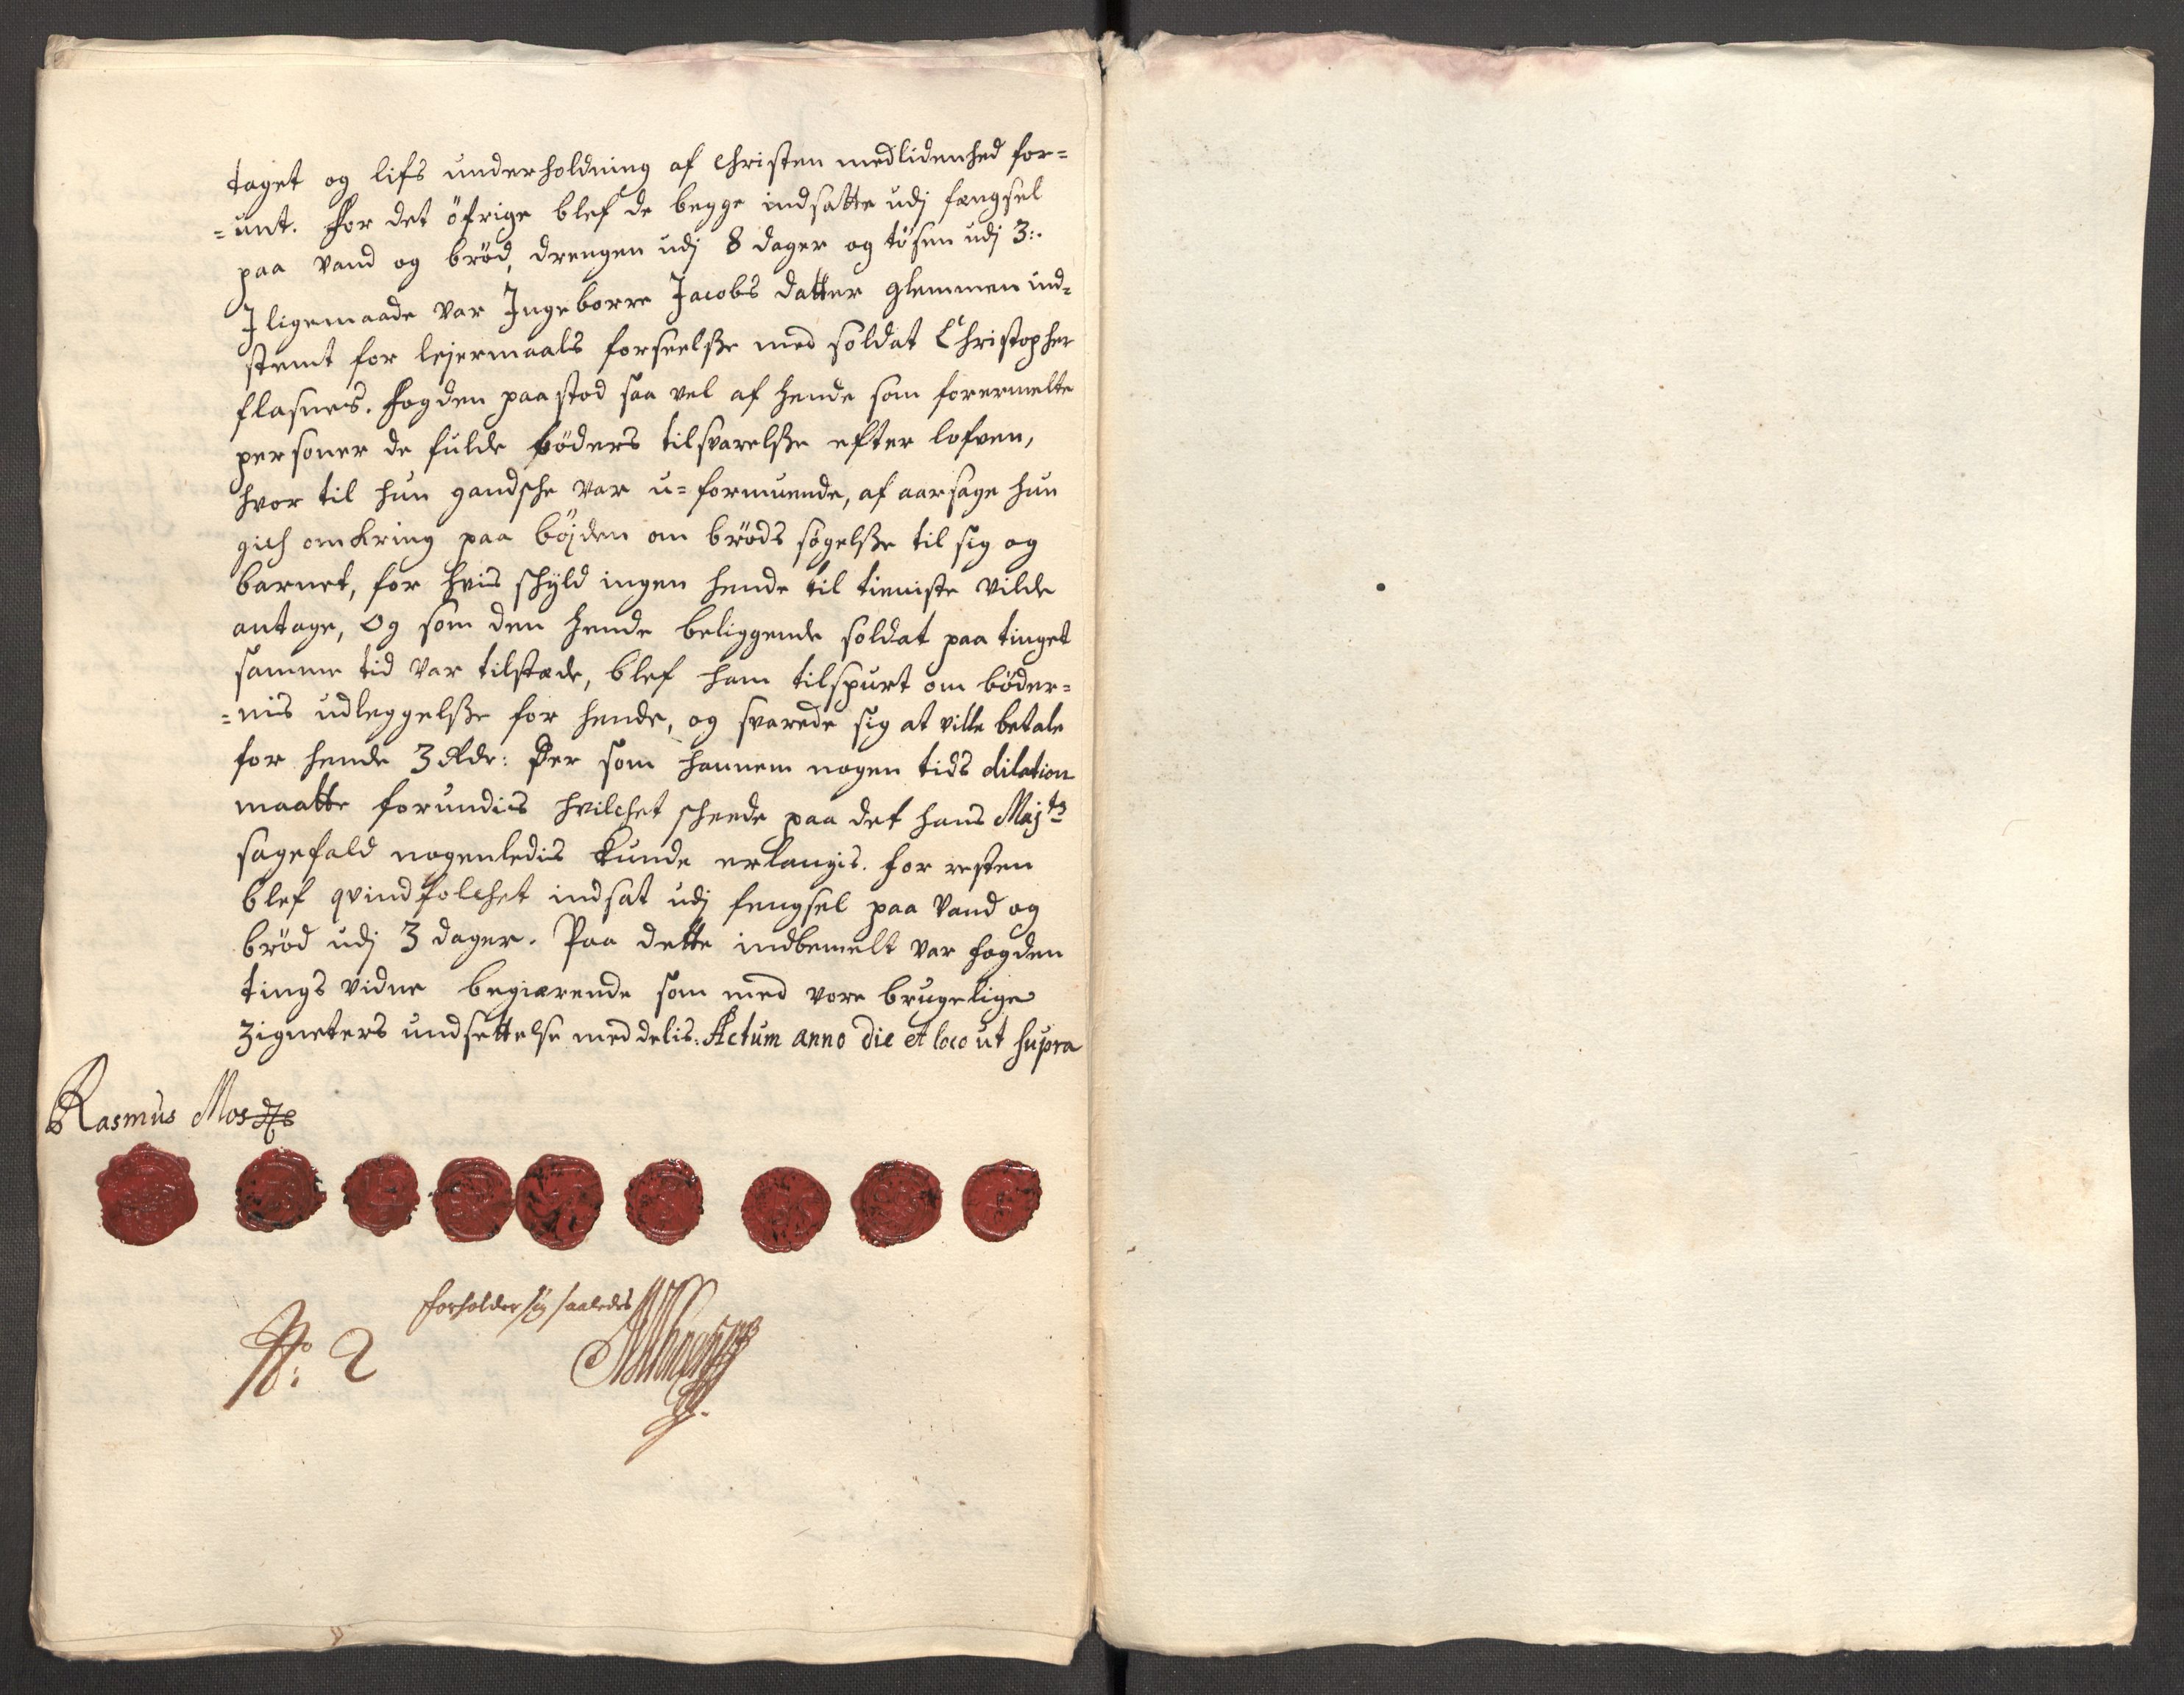 taget og lifs underholdning af christen medlidenhed for=
=unt. For det öfrige blef de begge indsatte udj fængsel
paa vand og bröd, drengen udj 8 dager og tösen udj 3:.
J ligemaade var Jngeborre Jacobs datter glemmen ind=
stemt for lejermaals forseelsße med soldat Christopher
flasnes. Fogden paastod saa vel af hende som forermelte
personer de fulde böders tilsvarelsße efter lofven,
hvor til hun gandsche var u=formuende, af aarsage hun
gich omkring paa böjden om bröds sögelsße til sig og
barnet, for hvis schyld ingen hende til tieniste vilde
antage, Og som den hende beliggende soldat paa tinget
samme tid var tilstæde, blef ham tilspurt om böder=
=nis udleggelsße for hende, og svarede sig at ville betale
for hende 3 Rdr: Der som hannem nogen tids dilation
maatte forundis hvilchet scheede paa det hans Maj:ts
sagefald nogenledis kunde erlangis. for resten
blef qvindfolchet indsat udj fengsel paa vand og
bröd udj 3 dager. Paa dette indbemelt var fogden
tings vidne begiærende som med vore brugelige
zigneters undsettelse meddelis. Actum anno die et loco ut supra
Rasmus Mos
forholder sig saaledes
No: 2